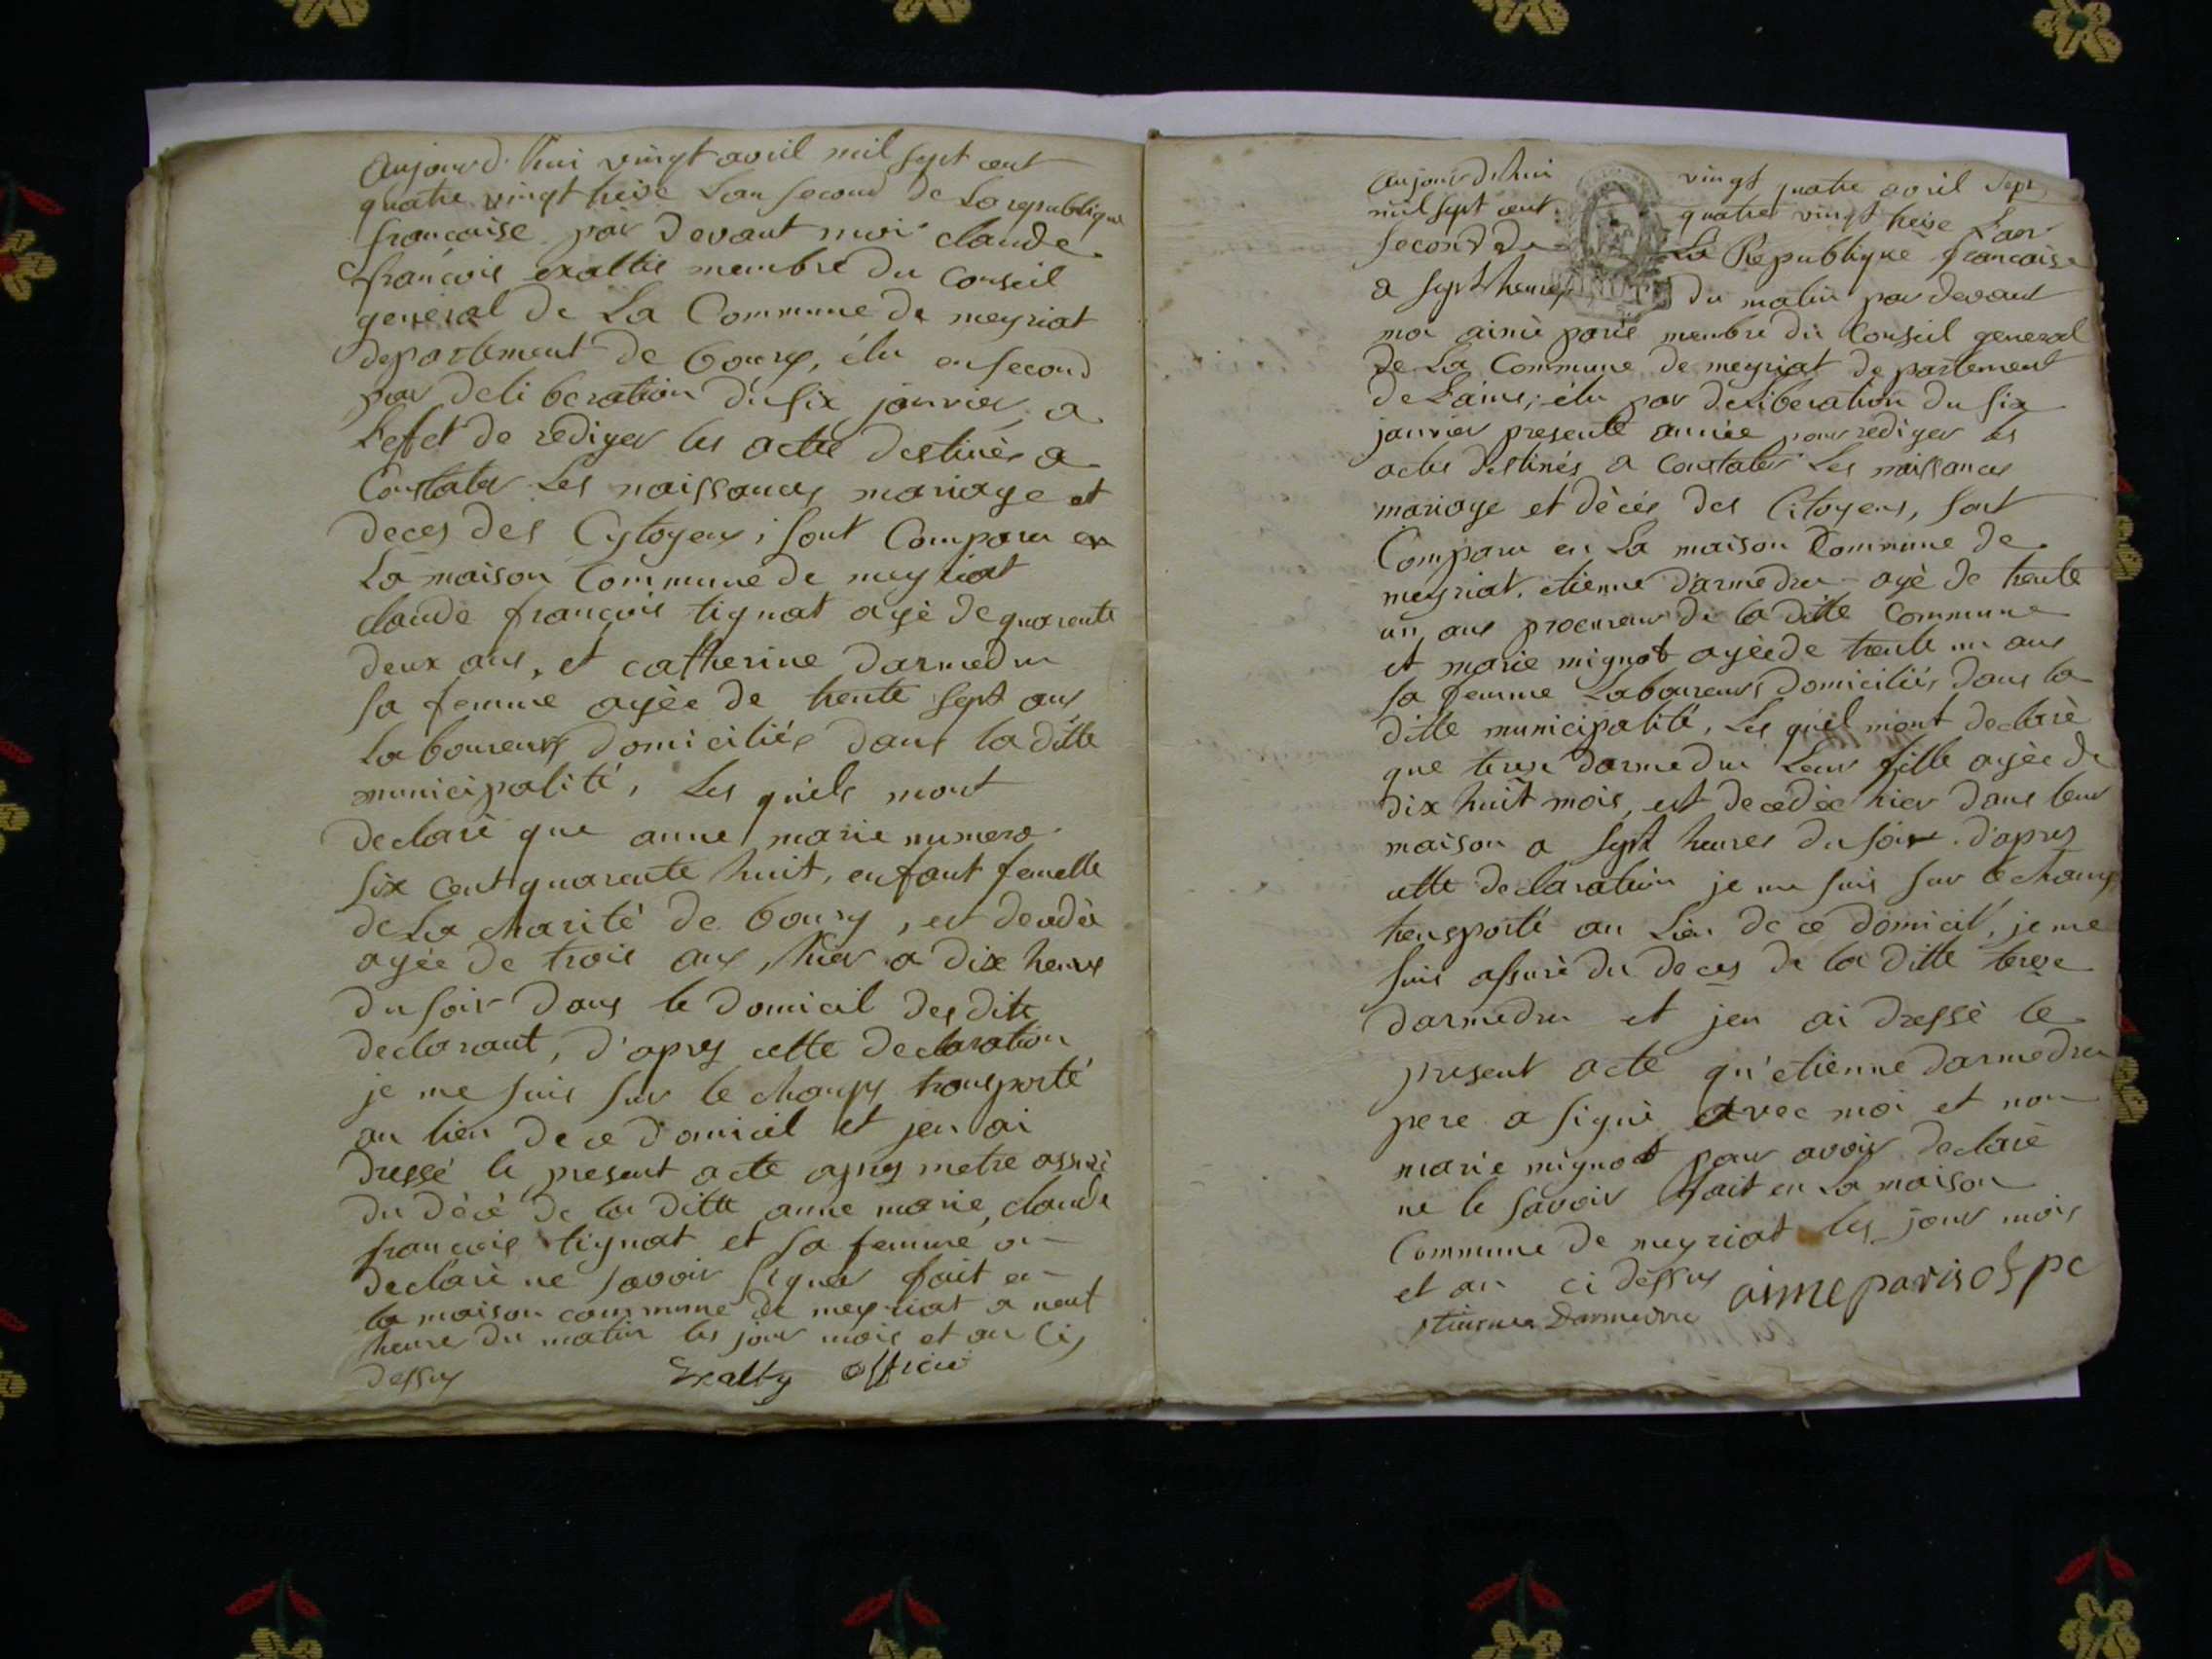 aujourd'hui vingt avril mil sept cent
quatre vingt treise L'an second de La republique
francaise par devant moi claude
francois exaltis membre du conseil
general de La Commune de meyriat
departement de bourg, élu en second
par deliberation du six janvier a
L'efet de rediger les acte destinés a
Constater Les naissances mariage et
deces des Cytoyens, sont Comparu en
La maison Commune de meyriat
claude françois tignat agé de quarente
deux ans, et catherine darmedru
sa femme agée de trente sept ans
Laboureurs domiciliés dans la ditte
municipalité, Les quels mont
declaré que anne marie numero
six cent quarente huit, enfant femelle
de La charité de bourg, est decedée
agée de trois ans, hier a dix heures
du soir dans le domicil des dits
declarant, d'apres cette declaration
je me suis sur le champs transporté
au lieu de ce domicil et jen ai
dressé le present acte apres metre assuré
du décé de la ditte anne marie, claude
francois tignat et sa femme on
declaré ne savoir signer fait en
la maison commune de meyriat a neuf
heure du matin les jour mois et an Ci
dessus Exalty officié
aujourd'hui vingt quatre avril sept
mil sept cent quatre vingt treise L'an
second de La Republique francaise
a sept heures du matin par devant
moi aimé paris membre du Conseil general
de La Commune de meyriat departement
de L'ains, élu par deliberation du six
janvier presente année pour rediger les
actes destinés a constater Les naissances
mariage et décés des Citoyens, sont
Comparu en La maison Commune de
meyriat, etienne darmedru agé de trente
un ans procureur de la ditte Commune
et marie mignot agée de trente un ans
sa femme Laboureurs domiciliés dans la
ditte municipalité, Les quel mont declaré
que terese darmedru Leur fille agée de
dix huit mois, est decedée hier dans leur
maison a sept heures du soir. d'apres
cette declaration je me suis sur le champ
transporté au Lieu de ce domicil, je me
suis assuré du deces de la ditte terese
darmedru et jen ai dressé le
present acte qu'etienne darmedru
pere a signé avec moi et non
marie mignot pour avoir declaré
ne le savoir fait en La maison
Commune de meyriat les jour mois
et an ci dessus aime paris of pc
etienne Darmedru